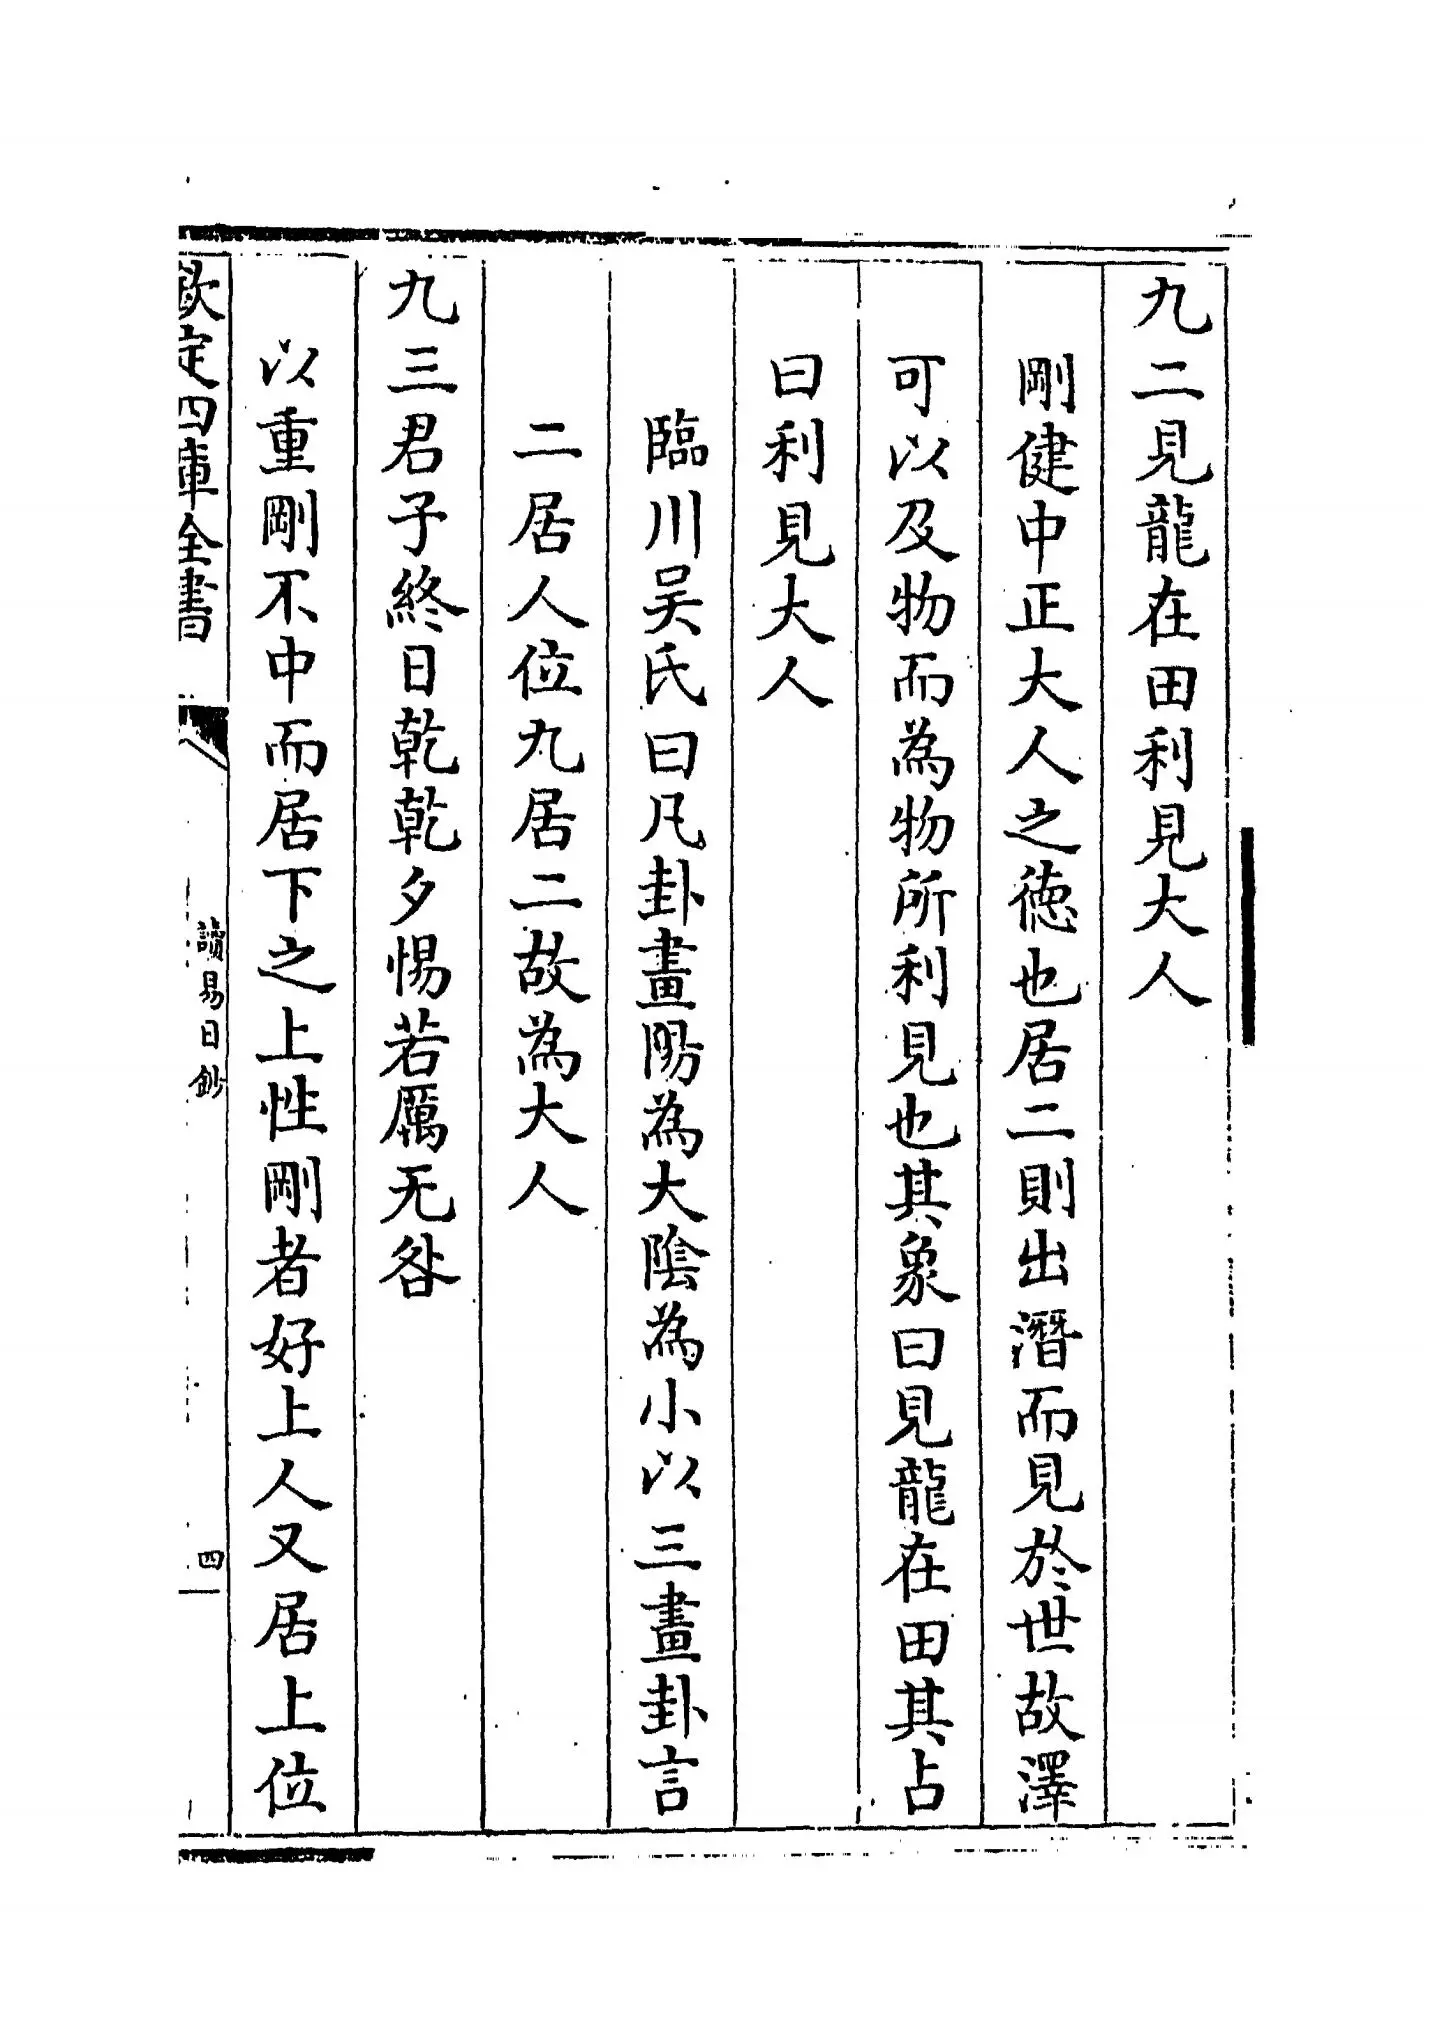 九二見龍在田利見大人
剛健中正大人之徳也居二則出潛而見於世故澤
可以及物而為物所利見也其象曰見龍在田其占
曰利見大人
臨川吴氏曰凡卦畫陽為大隂為小以三畫卦言
二居人位九居二故為大人
九三君子終日乾乾夕惕若厲无咎
以重剛不中而居下之上性剛者好上人又居上位
欽定四庫全書
讀易日鈔
四